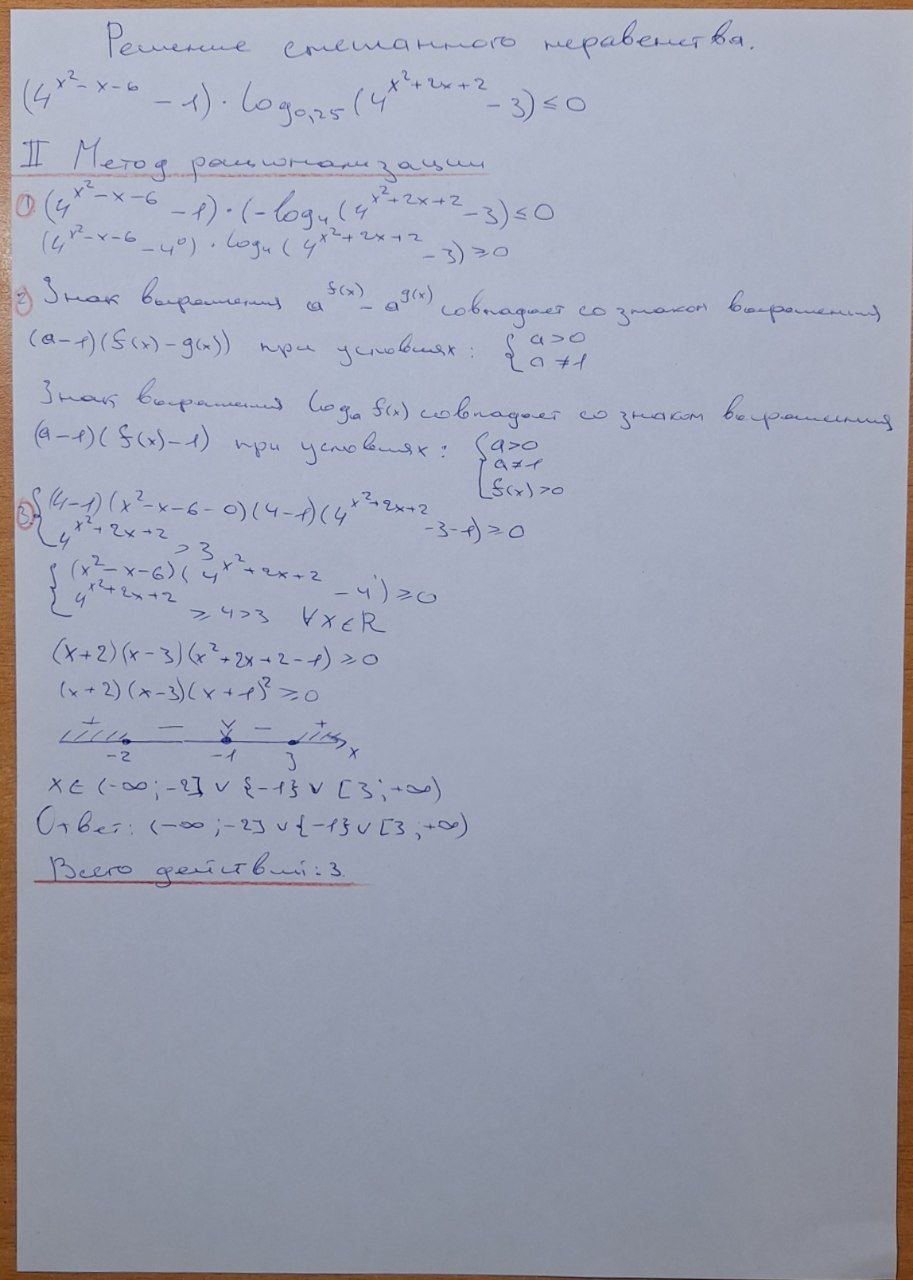 Решение смешанного неравенства.
(4^{x²-x-6} - 1) · log_{0,25} (4^{x²+2x+2} - 3) ≤ 0
II Метод рационализации
① (4^{x²-x-6} - 1) · (-log₄ (4^{x²+2x+2} - 3) ≤ 0
(4^{x²-x-6} - 4⁰) · log₄ (4^{x²+2x+2} - 3) ≥ 0
② Знак выражения a^{f(x)} - a^{g(x)} совпадает со знаком выражения
(a-1)(f(x)-g(x)) при условиях: { a>0
a≠1
Знак выражения logₐ f(x) совпадает со знаком выражения
(a-1)(f(x)-1) при условиях: { a>0
a≠1
f(x)>0
③ { (4-1)(x²-x-6-0)(4-1)(4^{x²+2x+2} -3-1) ≥ 0
4^{x²+2x+2} > 3
{ (x²-x-6)(4^{x²+2x+2} - 4¹) ≥ 0
4^{x²+2x+2} ≥ 4 > 3 ∀x∈R
(x+2)(x-3)(x²+2x+2-1) ≥ 0
(x+2)(x-3)(x+1)² ≥ 0
+ — — +
-2 -1 3 x
x∈ (-∞; -2] ∨ {-1} ∨ [3; +∞)
Ответ: (-∞; -2] ∨ {-1} ∨ [3; +∞)
Всего действий: 3.